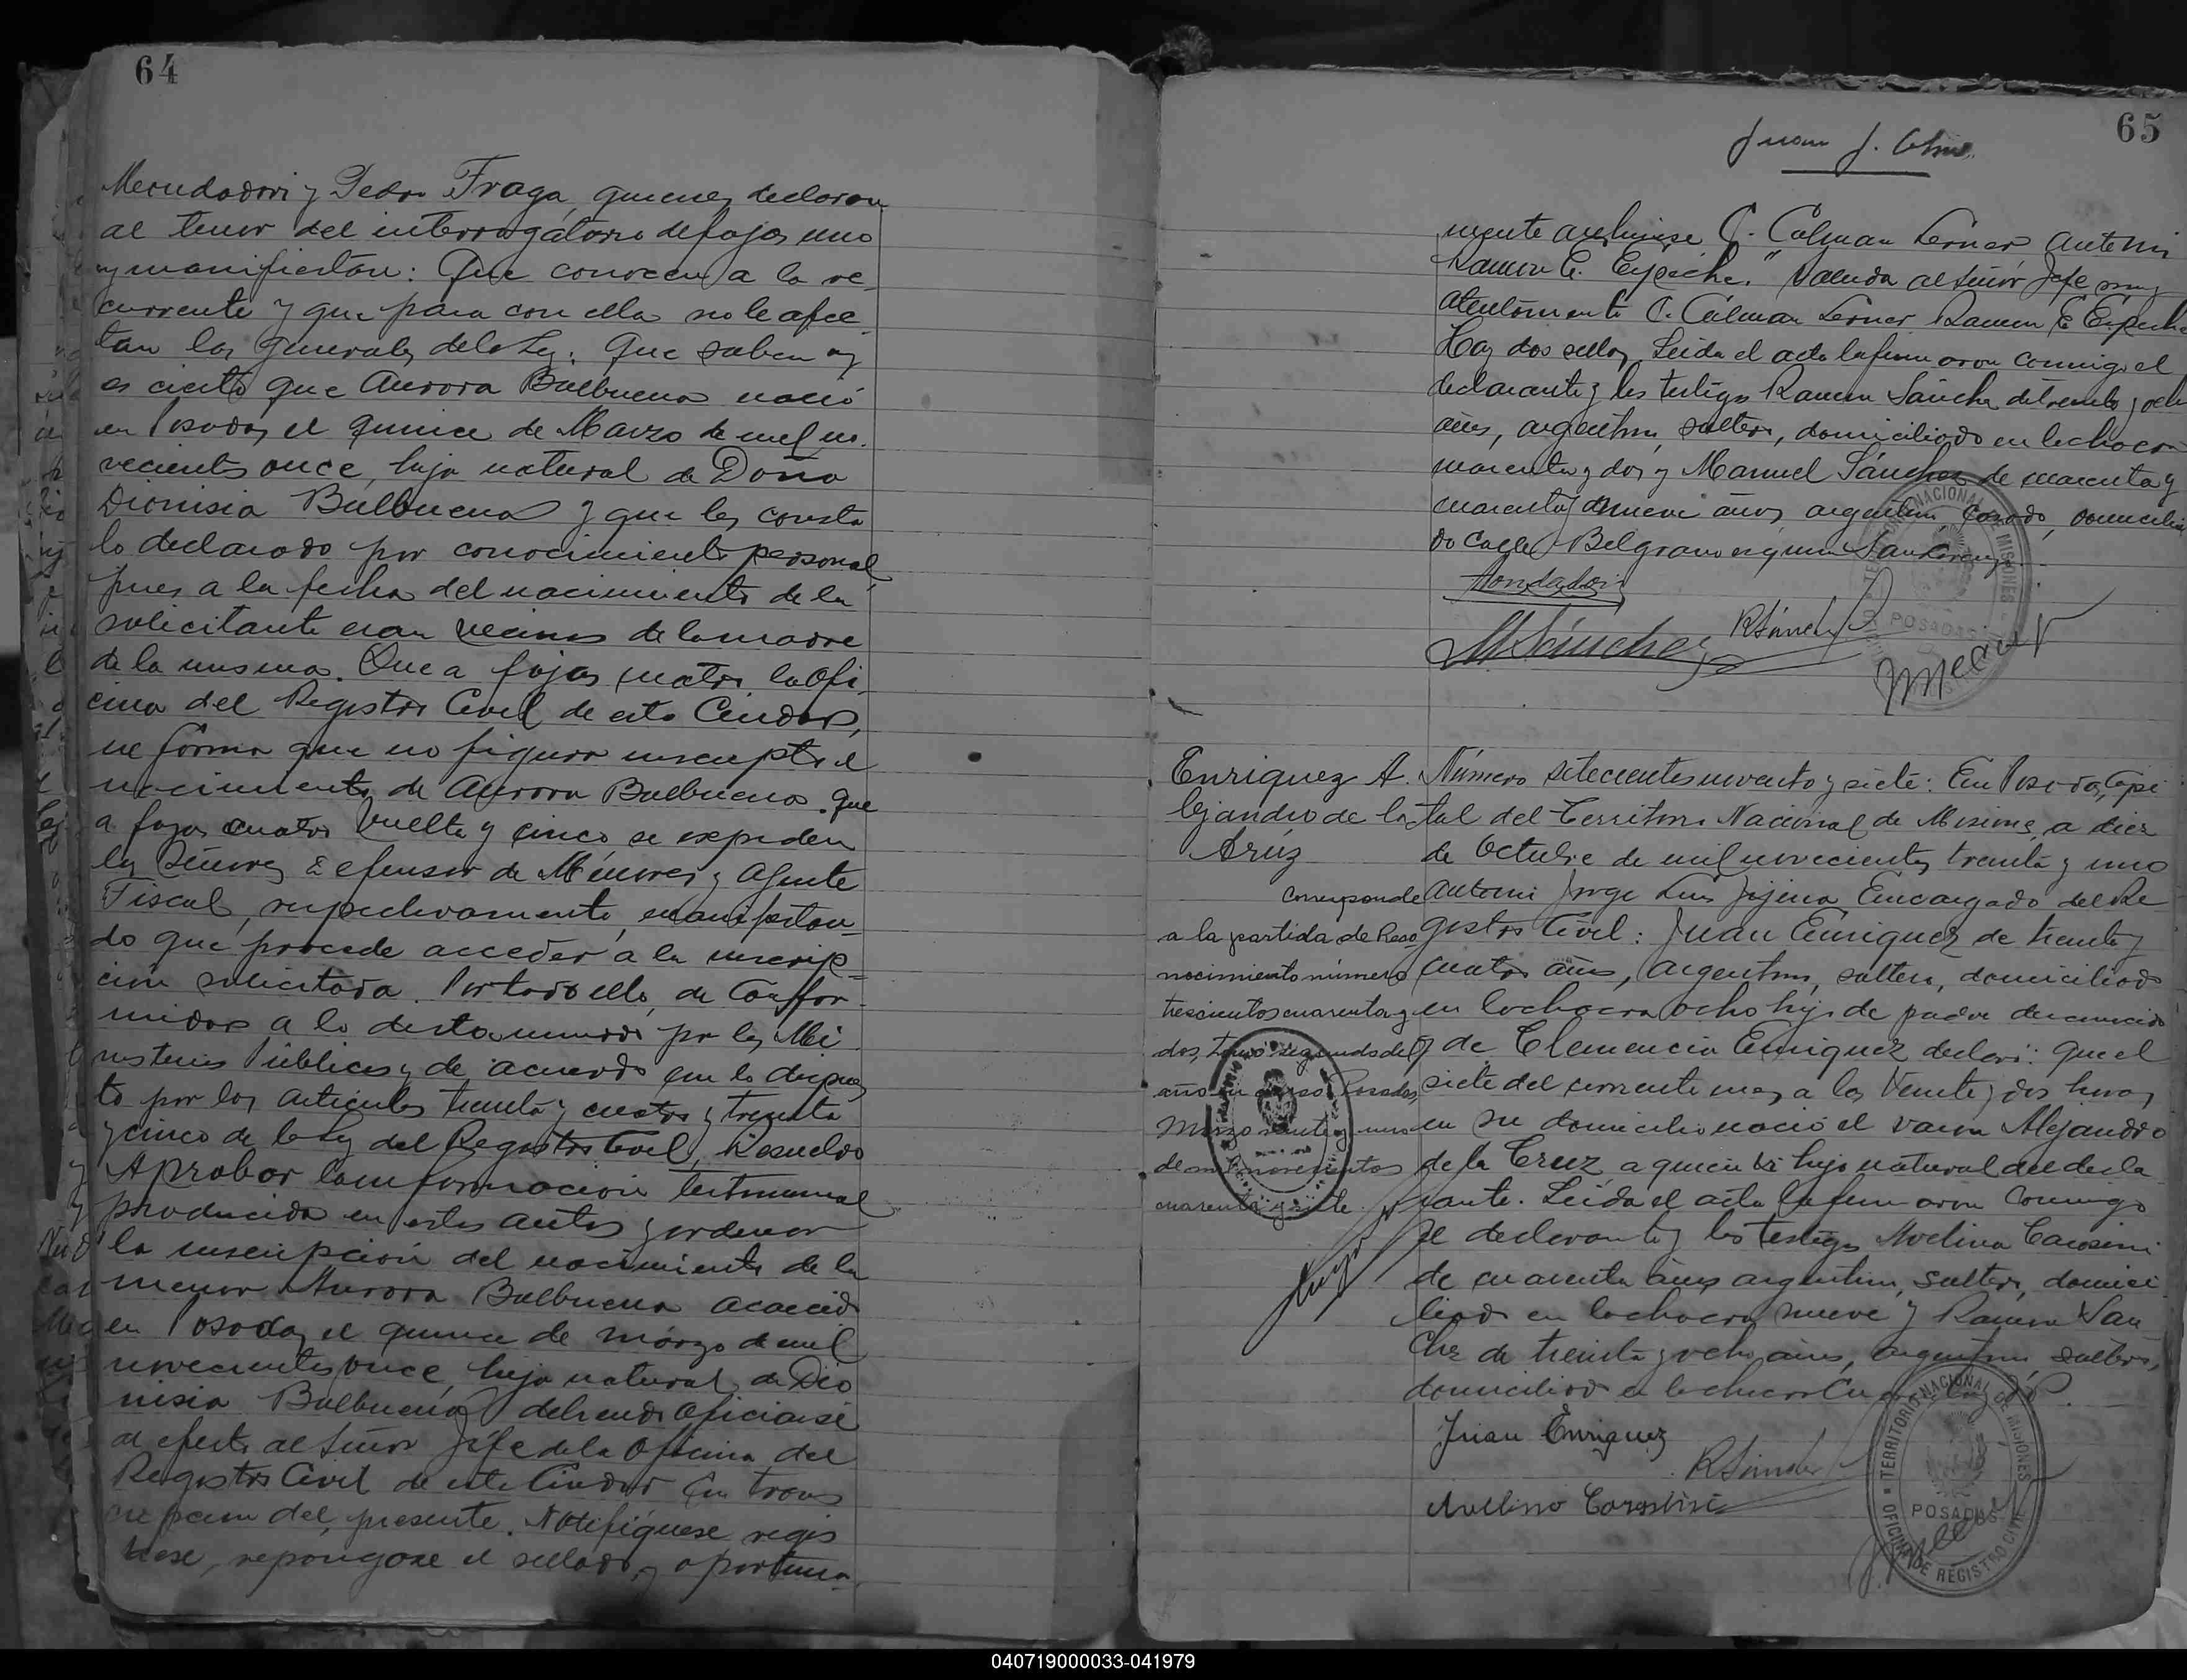 64
Mendadori y Pedro Fraga, quienes declaran
al tenor del interrogatorio de fojas uno
y manifiestan: Que conocen a la re-
currente y que para con ella no le afec-
tan las generales de la Ley. Que saben y
es cierto que Aurora Balbuena nació
en Posadas el quince de Marzo de mil no-
vecientos once, hija natural de Doña
Dionisia Balbuena y que les consta
lo declarado por conocimiento personal,
pues a la fecha del nacimiento de la
solicitante eran vecinos de la madre
de la misma. Que a fojas cuatro la Ofi-
cina del Registro Civil de esta Ciudad,
informa que no figura inscripto el
nacimiento de Aurora Balbuena. Que
a fojas cuatro vuelta y cinco se expiden
los Señores Defensor de Menores y Agente
Fiscal, respectivamente, manifestan-
do que procede acceder a la inscrip-
ción solicitada. Por todo ello, de confor-
midad a lo dictaminado por los Mi-
nisterios Públicos y de acuerdo con lo dispues
to por los artículos treinta y cuatro y treinta
y cinco de la Ley del Registro Civil, Resuelvo
Aprobar la información testimonial
producida en estos autos y ordenar
la inscripción del nacimiento de la
menor Aurora Balbuena acaecido
en Posadas el quince de marzo de mil
novecientos once, hija natural de Dio
nisia Balbuena debiendo oficiarse
al efecto al Señor Jefe de la Oficina del
Registro Civil de esta Ciudad con trans
cripcion del presente. Notifiquese regis
trese, repongase el sellado, y oportuna-
65
Juan J.
mente archivese C. Calman Lerner Ante mi
Ramon E. Espeche." Saluda al señor Jefe muy
atentamente C. Calman Lerner Ramon E Espeche
Hay dos sellos. Leida el acta la firmaron conmigo el
declarante y los testigos Ramon Sánchez de treinta y ocho
años, argentino, soltero, domiciliado en la chacra
cuarenta y dos y Manuel Sánchez de cuarenta y
cuarenta y nueve años, argentino, casado, domicilia
do calle Belgrano esquina San Lorenzo.
Mondadori
MSánchez RSánchez
TERRITORIO NACIONAL DE MISIONES
POSADAS
Enriquez A-
lejandro de la
Crúz
Corresponde
a la partida de Reco
nocimiento número
trescientos cuarenta y
dos, tomo segundo del
año en curso Posadas,
Marzo veinte y uno
de mil novecientos
cuarenta y siete.
Número setecientos noventa y siete: En Posadas, Capi
tal del Territorio Nacional de Misiones, a diez
de Octubre de mil novecientos treinta y uno
ante mi Jorge Luis Jijena Encargado del Re-
gistro Civil: Juan Enriquez de treinta y
cuatro años, argentino, soltero, domiciliado
en la chacra ocho hijo de padre desconocido
y de Clemencia Enriquez declaró: que el
siete del corriente mes a las veinte y dos horas
en su domicilio nació el varon Alejandro
de la Cruz a quien vi hijo natural del decla
rante. Leida el acta la firmaron conmigo
el declarante y los testigos Avelino
de cuarenta años, argentino, soltero, domici
liado en la chacra nueve y Ramon San
chez de treinta y ocho años, argentino, soltero,
domiciliado en la chacra cuarenta y dos.
Juan Enriquez
RSánchez
Avelino
TERRITORIO NACIONAL DE MISIONES
POSADAS
OFICINA DE REGISTRO CIVIL
040719000033-041979